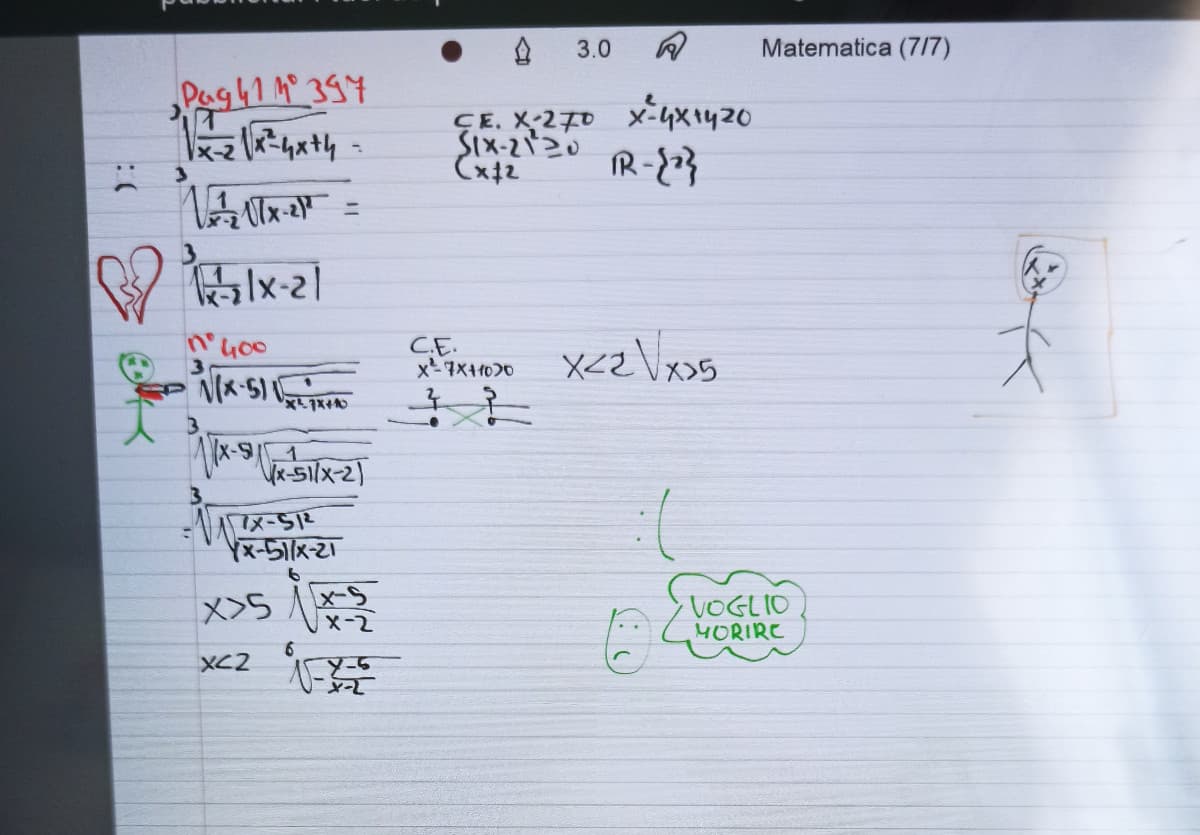 3.0 Matematica (7/7)
Pag 41 n° 397
³√(1/(x-2) √(x²-4x+4)) =
C.E. x-2≠0 x²-4x+4≥0
{(x-2)²≥0
x≠2
R-{2}
³√(1/(x-2) √(x-2)²) =
³√(1/(x-2) |x-2|
n° 400
³√((x-5) √(1/(x²-7x+10)))
C.E.
x²-7x+10>0
x<2 V x>5
2 5
³√((x-5) √(1/((x-5)(x-2))))
= ³√(√((x-5)²/((x-5)(x-2))))
x>5 ⁶√((x-5)/(x-2))
x<2 ⁶√(-(x-5)/(x-2))
:(
VOGLIO
MORIRE